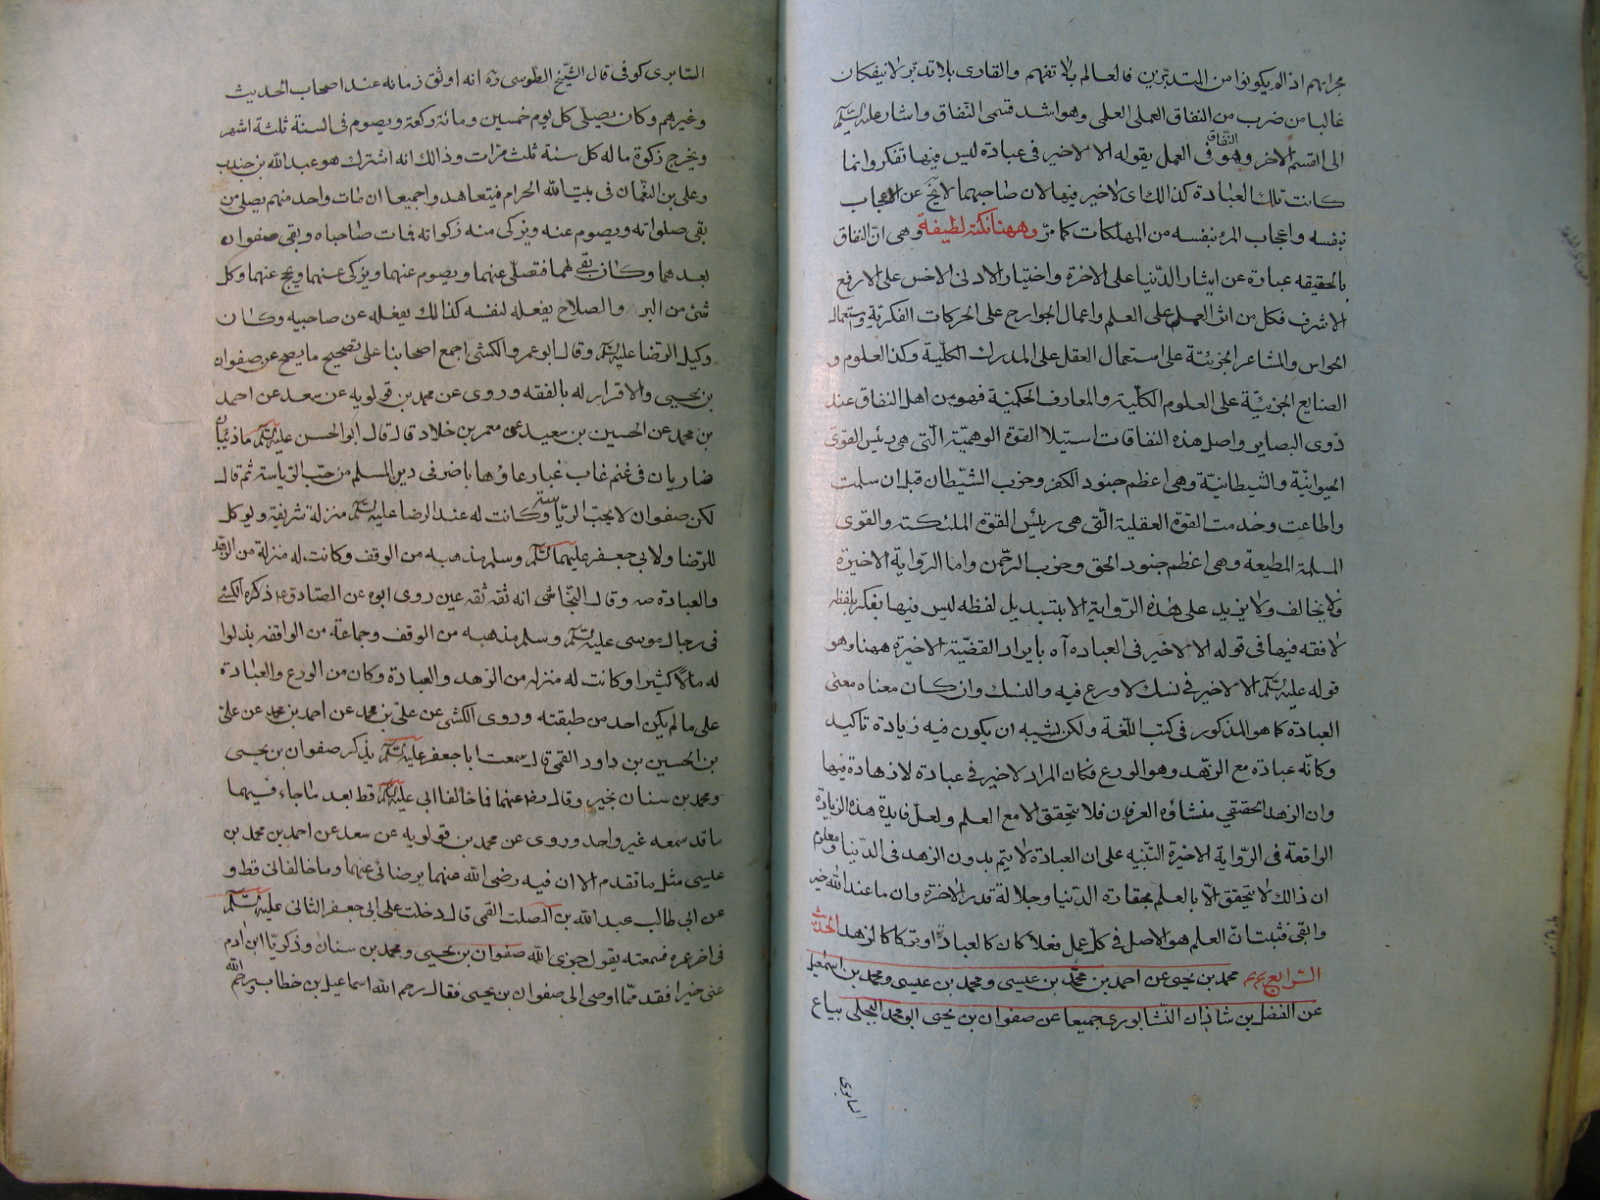 مجراتهم اذ لم يكونوا من المتدبرين فالعالم بلا تفهم والقارى بلا تدبر لا ينفكان
غالبا من ضرب من النفاق العملى العلمى وهو اشد قسمى النفاق واشار عليه السلم
الى القسم الاخر وهو النفاق فى العمل بقوله الا لا خير فى عبادة ليس فيها تفكر وانما
كانت تلك العبادة كذالك اى لا خير فيها لان صاحبهما لا ينج عن الاعجاب
بنفسه واعجاب المرء بنفسه من المهلكات كما مرّ وههنا نكتة لطيفة وهى ان النفاق
بالحقيقه عبارة عن ايثار الدنيا على الاخرة واختيار الادنى الاخس على الارفع
الاشرف فكل من اثر العمل على العلم واعمال الجوارح على الحركات الفكرية واستعمال
الحواس والمشاعر الجزئيّة على استعمال العقل على المدرك الكلية وكذا العلوم و
الصنايع الجزئيّة على العلوم الكلّية والمعارف الحكميّة فهو من اهل النفاق عند
ذوى البصاير واصل هذه النفاقات استيلا القوة الوهميّة الّتى هى رئيس القوى
الحيوانيّة والشيطانيّة وهى اعظم جنود الكفر وحزب الشيطان قبل ان سلمت
واطاعت وخدمت القوة العقلية الّتى هى رئيس القوة الملئكته والقوى
المسلمة المطيعة وهى اعظم جنود الحق وحزب الرحمن واما الرّواية الاخيرة
فلا يخالف ولا يزيد على هذه الرّواية الا بتبديل لفظه ليس فيها بفكر بلفظه
لا فقه فيها فى قوله الا لا خير فى العبادة آه بايراد القضيّة الاخيرة ههنا وهو
قوله عليه السلم الا لا خير فى نسك لا ورع فيه والنسك وان كان معناه معنى
العبادة كما هو المذكور فى كتب اللغة ولكن يشبه ان يكون فيه زيادة تاكيد
وكانّه عبادة مع الزهد وهو الورع فكان المراد لا خير فى عبادة لا زهادة فيها
وان الزهد الحقيقي منشاؤه العرفان فلا يتحقق الا مع العلم ولعل فايدة هذه الزيادة
الواقعة فى الرّواية الاخيرة التنبيه على ان العبادة لا يتم بدون الزهد فى الدنيا ومعلوم
ان ذالك لا يتحقق الّا بالعلم بحقارة الدنيا وجلالة قدر الاخرة وان ما عند الله خير
وابقى فثبت انّ العلم هو الاصل فى كل عمل فعلا كان كالعبادة او تركا كالزهد الحديث
الرّابع محمد بن يحيى عن احمد بن محمد بن عيسى ومحمد بن عيسى ومحمد بن اسمعيل
عن الفضل بن شاذان النشابورى جميعا عن صفوان بن يحيى ابو محمد البجلى بياع
السابرى
السابرى كوفى قال الشيخ الطوسى ره انه اوثق زمانه عند اصحاب الحديث
وغيرهم وكان يصلى كل يوم خمسين ومائة ركعة ويصوم فى السنة ثلثة اشهر
ويخرج زكوة ماله كل سنة ثلث مرّات وذالك انه اشترك هو عبد الله بن جندب
وعلى بن النعمان فى بيت الله الحرام فيتعاهدوا جميعا ان مات واحد منهم يصلى من
بقى صلواته ويصوم عنه ويزكى منه زكواته فمات صاحباه وبقى صفوان
بعدهما وكان يفى لهما فتصلى عنهما ويصوم عنهما ويزكى عنهما ويحج عنهما وكل
شئ من البر والصلاح يفعله لنفسه كذالك يفعله عن صاحبيه وكان
وكيل الرضا عليه السلم وقال ابو عمرو الكشى اجمع اصحابنا على تصحيح ما يصح عن صفوان
بن يحيى والاقرار له بالفقه وروى عن محمد بن قولويه عن سعد عن احمد
بن محمد عن الحسين بن سعيد عن معمر بن خلاد قال قال ابو الحسن عليه السلم ما ذئبان
ضاريان فى غنم غاب عنها رعاؤها باضر فى دين المسلم من حبّ الرّياسة ثم قال
لكن صفوان لا يحب الرّياسة وكانت له عند الرضا عليه السلم منزلة شريفة وتوكل
للرّضا ولابى جعفر عليهما السلم وسلم مذهبه من الوقف وكانت له منزلة من الزهد
والعبادة صه وقال النجاشى انه ثقه ثقه عين روى ابوه عن الصادق ع ذكره الكشى
فى رجال موسى عليه السلم وسلم مذهبه من الوقف وجماعة من الواقفه بذلوا
له مالا كثيرا وكانت له منزله من الزهد والعبادة وكان من الورع والعبادة
على ما لم يكن احد من طبقته وروى الكشى عن على بن محمد عن احمد بن محمد عن على
بن الحسين بن داود القمى قال سمعت ابا جعفر عليه السلم يذكر صفوان بن يحيى
ومحمد بن سنان بخير وقال رضا عنهما فما خالفا ابى عليه السلم قط بعد ما جاء فيهما
ما قد سمعه غير واحد وروى عن محمد بن قولويه عن سعد عن احمد بن محمد بن
عيسى مثل ما تقدم الا ان فيه رضى الله عنهما برضائى عنهما وما خالفانى قط و
عن ابى طالب عبد الله بن الصلت القمى قال دخلت على ابى جعفر الثانى عليه السلم
فى اخر عمره فسمعته يقول جزى الله صفوان بن يحيى ومحمد بن سنان وذكريّا ابن ادم
عنى خيرا فقد ممّا اوصى الى صفوان بن يحيى فقال رحم الله اسماعيل بن خطاب ورحم الله